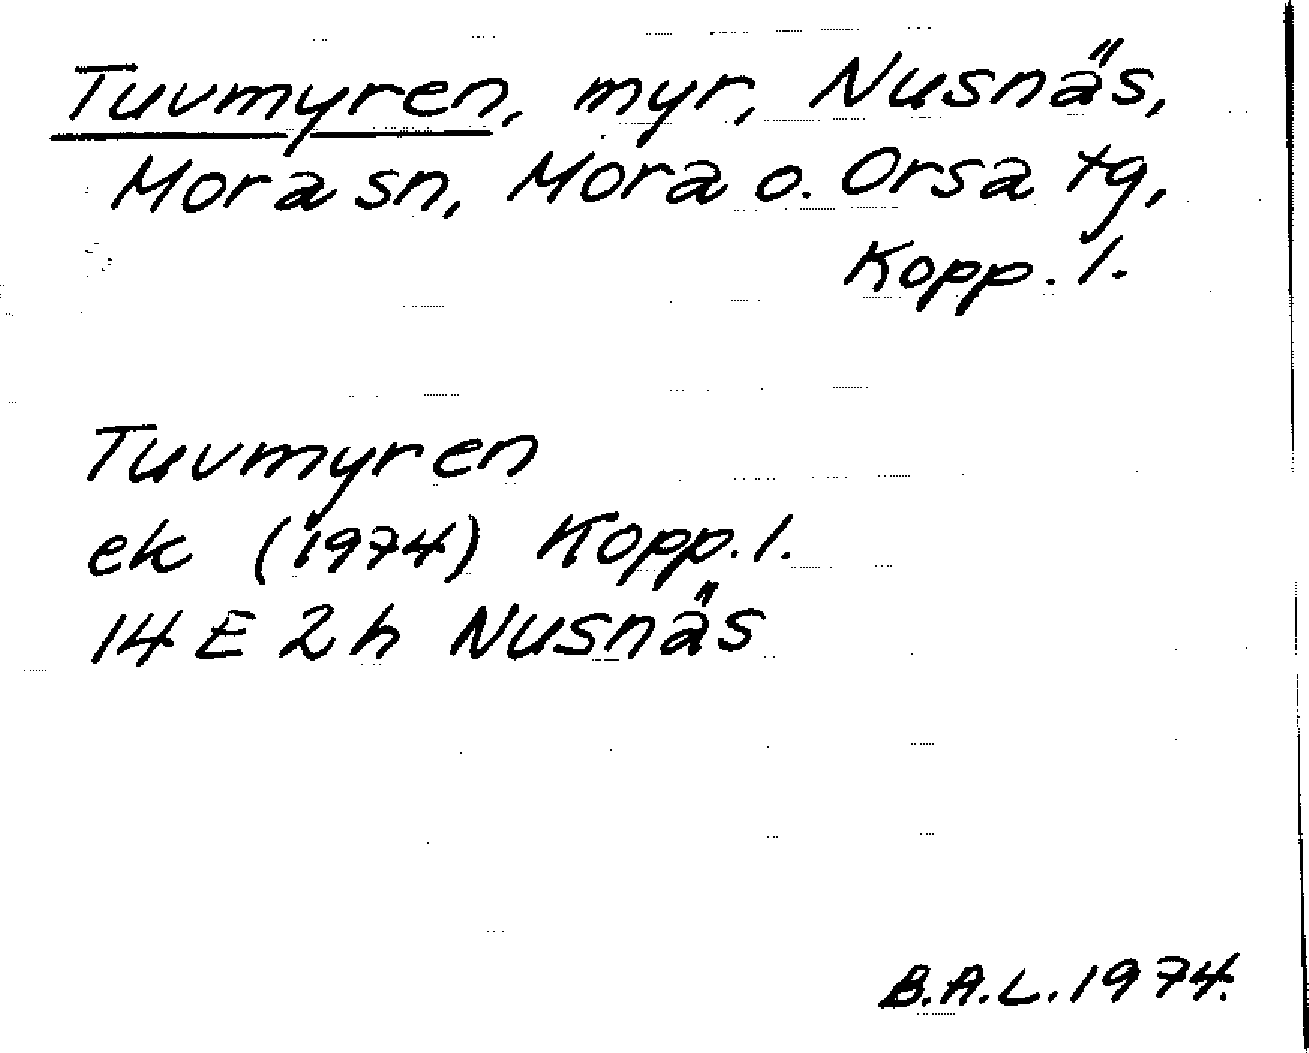 Tuvmyren, myr, Nusnäs,
Mora sn, Mora o. Orsa tg,
Kopp. l.
Tuvmyren
ek (1974) Kopp. l.
14 E 2 h Nusnäs
B.A.L. 1974.